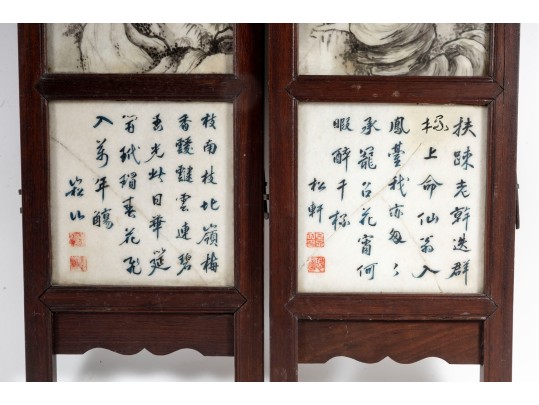 扶疎老幹迭群
上命仙翁入
鳳臺我亦匆〻
承寵召花宵何
暇醉千杯
松軒
枝南枝北嶺梅
香靉靆雲連碧
光此日華筵
玳瑁春花飛
入萬年觴
崧山